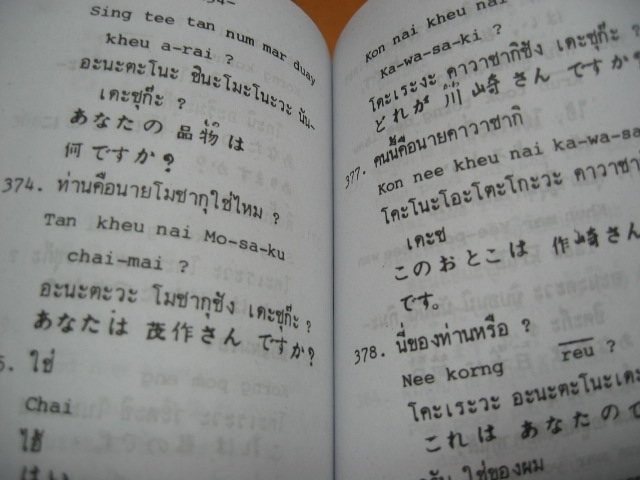 -34-
Sing tee tan num mar duay
kheu a-rai ?
อะนะตะโนะ ชินะโมะโนะวะ นัน-
เดะซุก๊ะ ?
あなたの 品物は
何ですか?
374. ท่านคือนายโมซากุใช่ไหม ?
Tan kheu nai Mo-sa-ku
chai-mai ?
อะนะตะวะ โมซากุซัง เดะซุก๊ะ ?
あなたは 茂作さん ですか?
5. ใช่
Chai
ไฮ้
はい
Kon nai kheu nai
Ka-wa-sa-ki ?
โดะเระงะ คาวาซากิซัง เดะซุก๊ะ ?
どれが 川崎さん ですか?
377. คนนี้คือนายคาวาซากิ
Kon nee kheu nai ka-wa-sa
โคะโนะโอะโตะโกะวะ คาวาซา
เดะซ
このおとこは 作崎さん
です。
378. นี่ของท่านหรือ ?
Nee korng reu ?
โคะเระวะ อะนะตะโนะเดะ
これは あなたので
ใช่ของผม